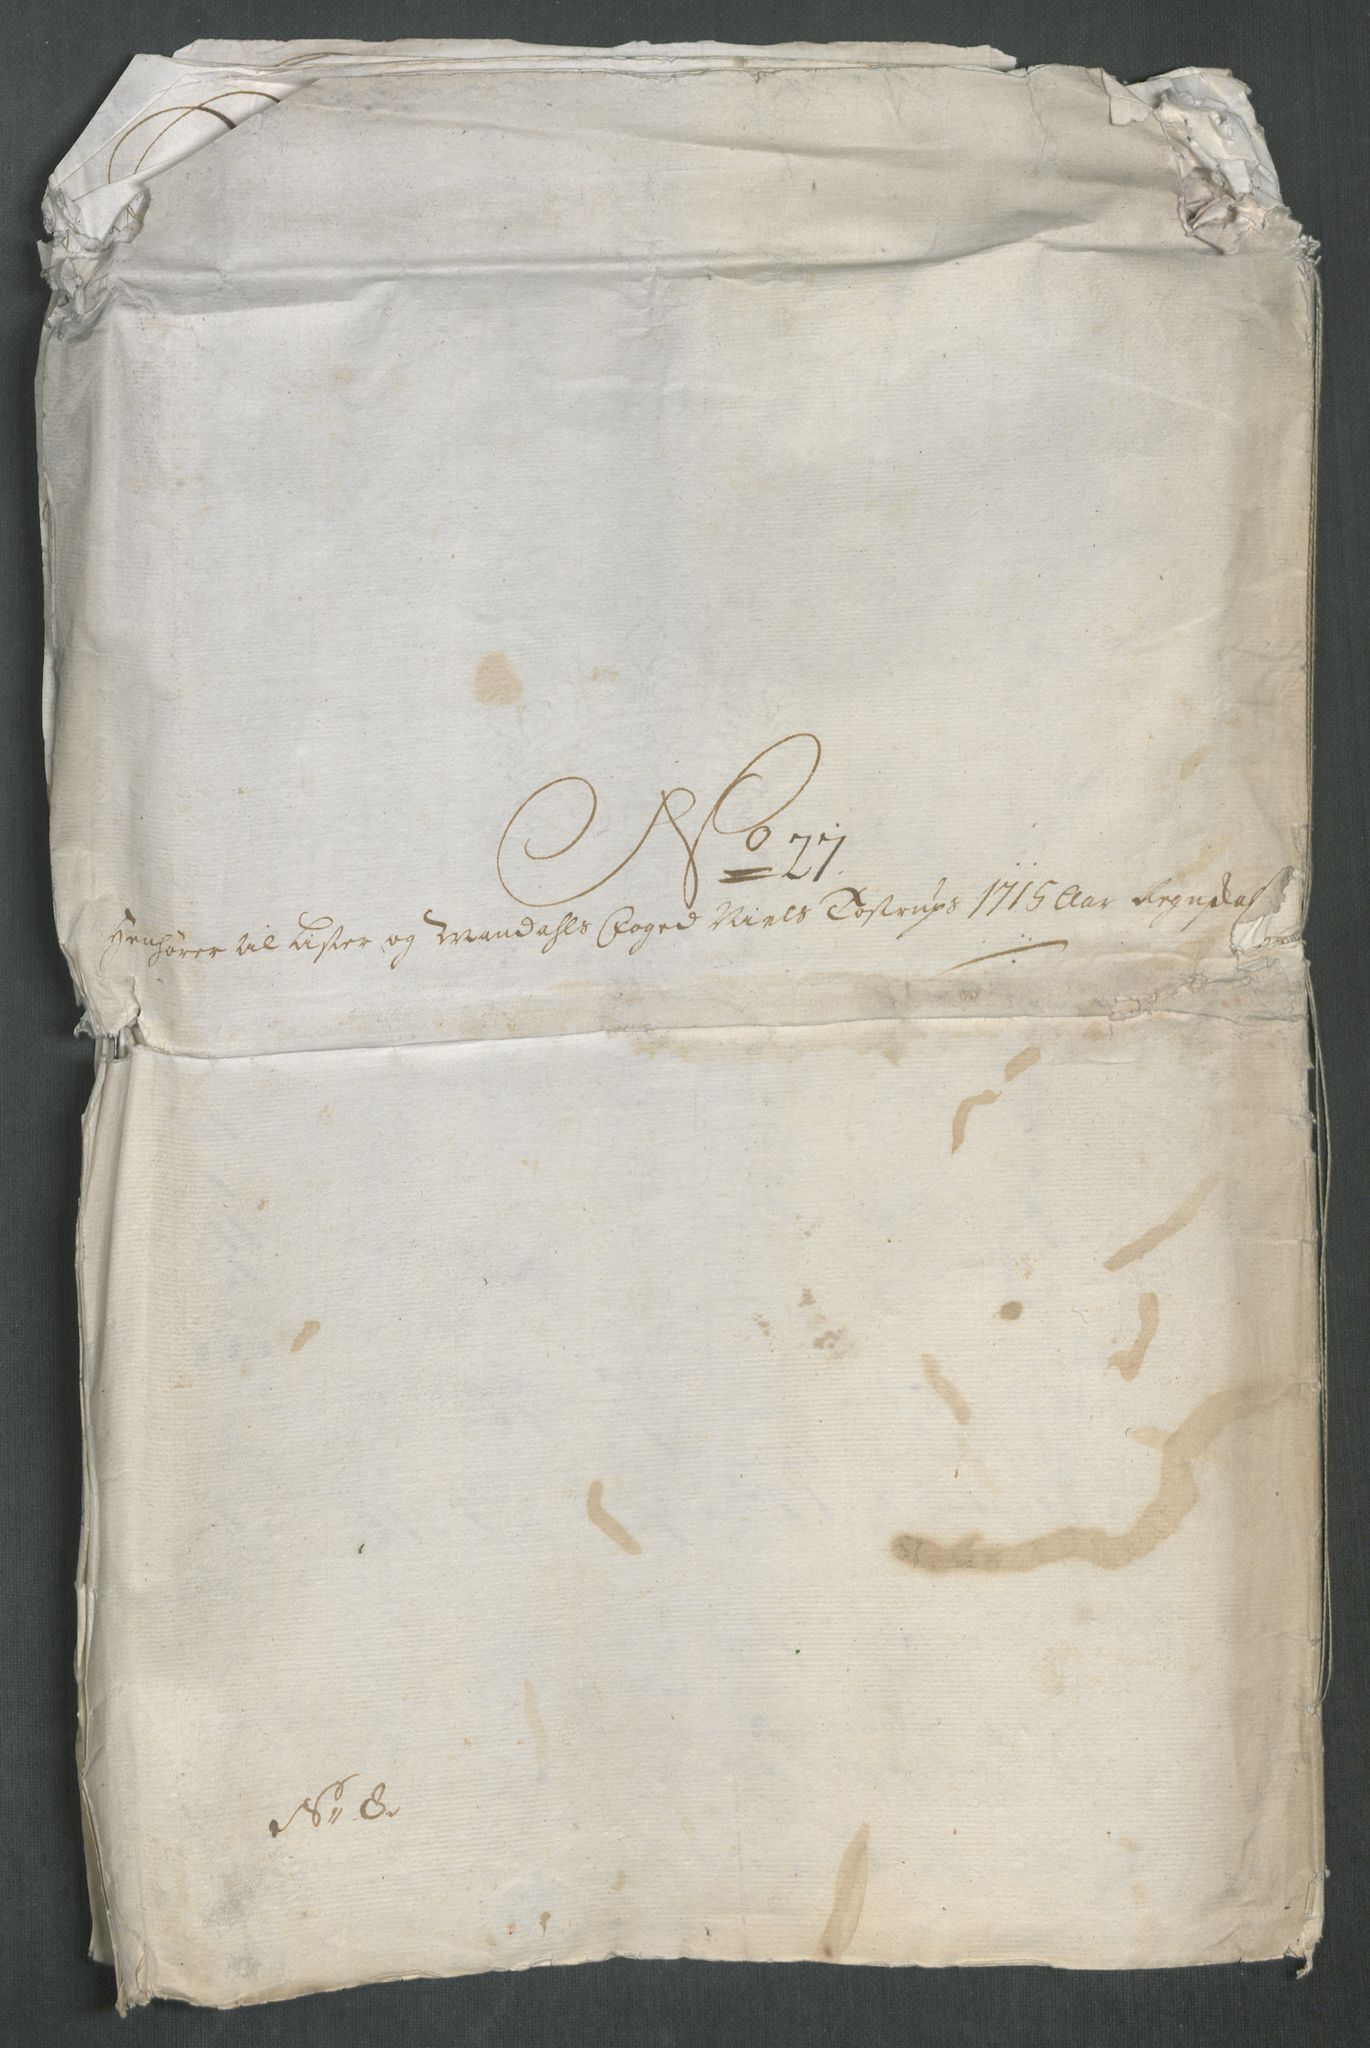 No 27.
Henhörer til Lister og Mandahls Foged Niels Tostrups 1715 Aar Regnskab
No 8.